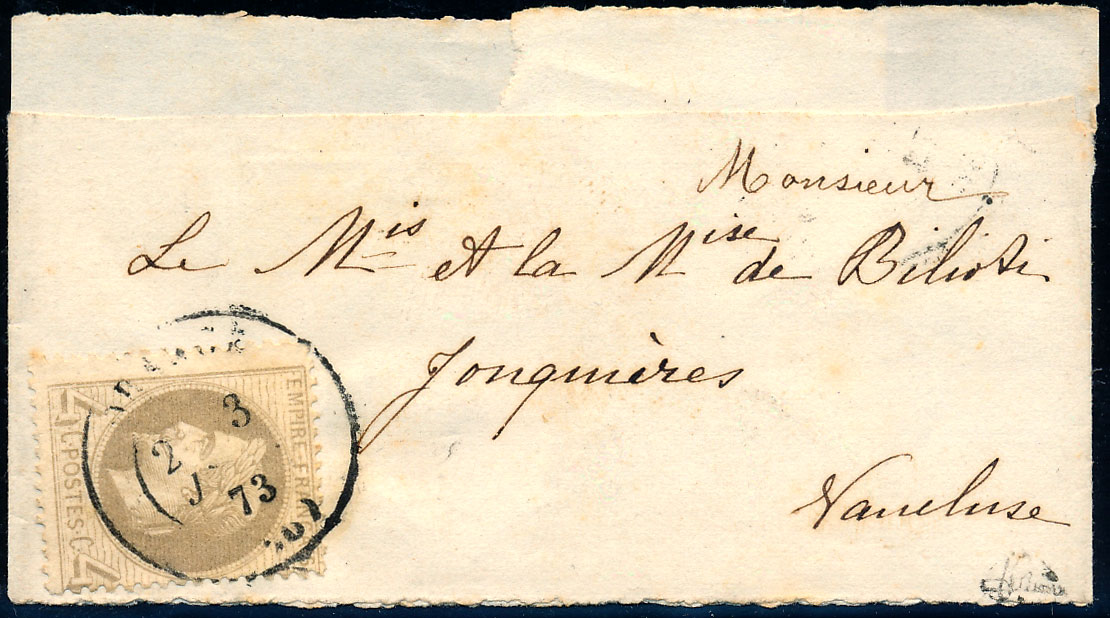 Monsieur
Le Mis et la Mise de Bilioti
Jonquières
Vaucluse
EMPIRE FRAN
4 C. POSTES C. 4
3
2 J. 73